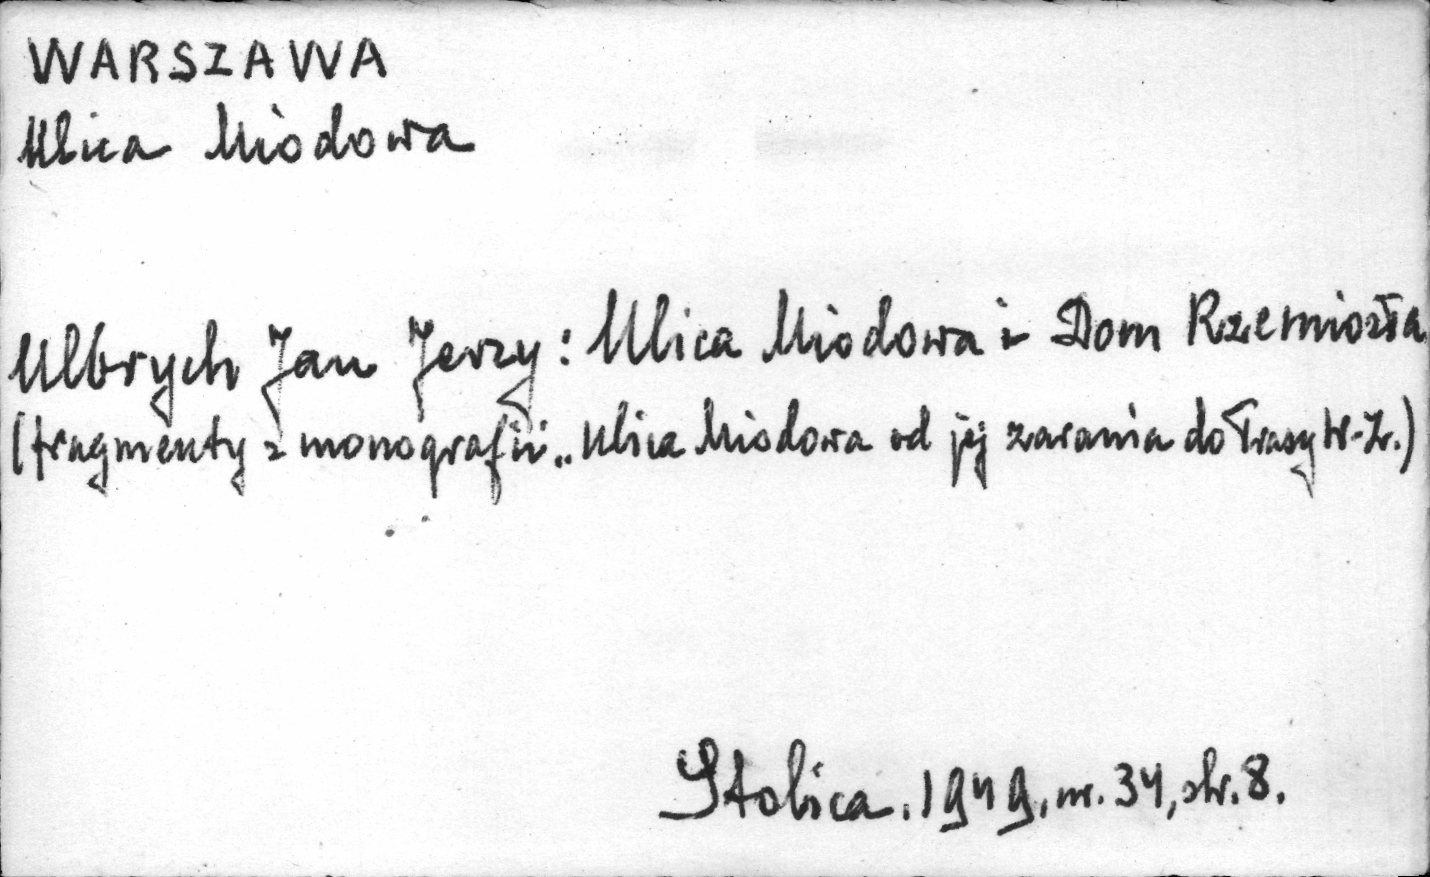 WARSZAWA
Ulica Miodowa
Ulbrych Jan Jerzy: Ulica Miodowa i Dom Rzemiosła
(fragmenty z monografii „Ulica Miodowa od jej zarania do Trasy W-Z.)
Stolica. 1949, nr. 34, str. 8.